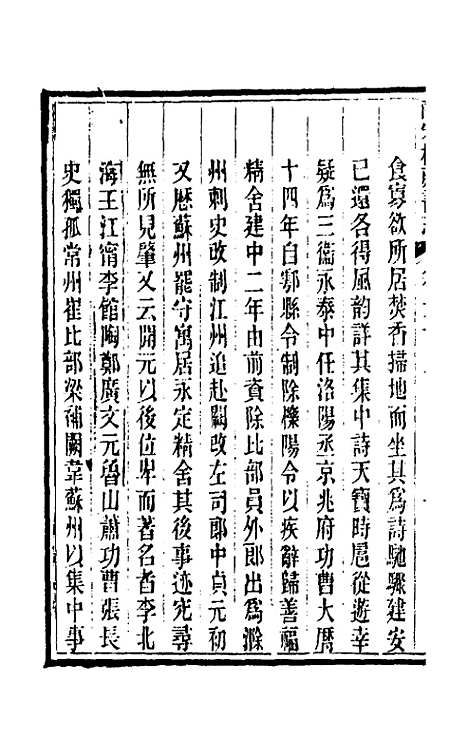 食寡欲所居焚香掃地而坐其爲詩馳驟建安
已還各得風韵詳其集中詩天寶時扈從遊幸
疑爲三衞永泰中任洛陽丞京兆府功曹大厯
十四年自鄠縣令制除櫟陽令以疾辭歸善福
精舍建中二年由前資除比部員外郎出爲滁
州刺史改制江州追赴闕改左司郎中貞元初
又歷蘇州罷守寓居永定精舍其後事迹究尋
無所見肇又云開元以後位卑而著名者李北
海王江甯李館陶鄭廣文元魯山蕭功曹張長
史獨孤常州崔比部梁補闕韋蘇州以集中事